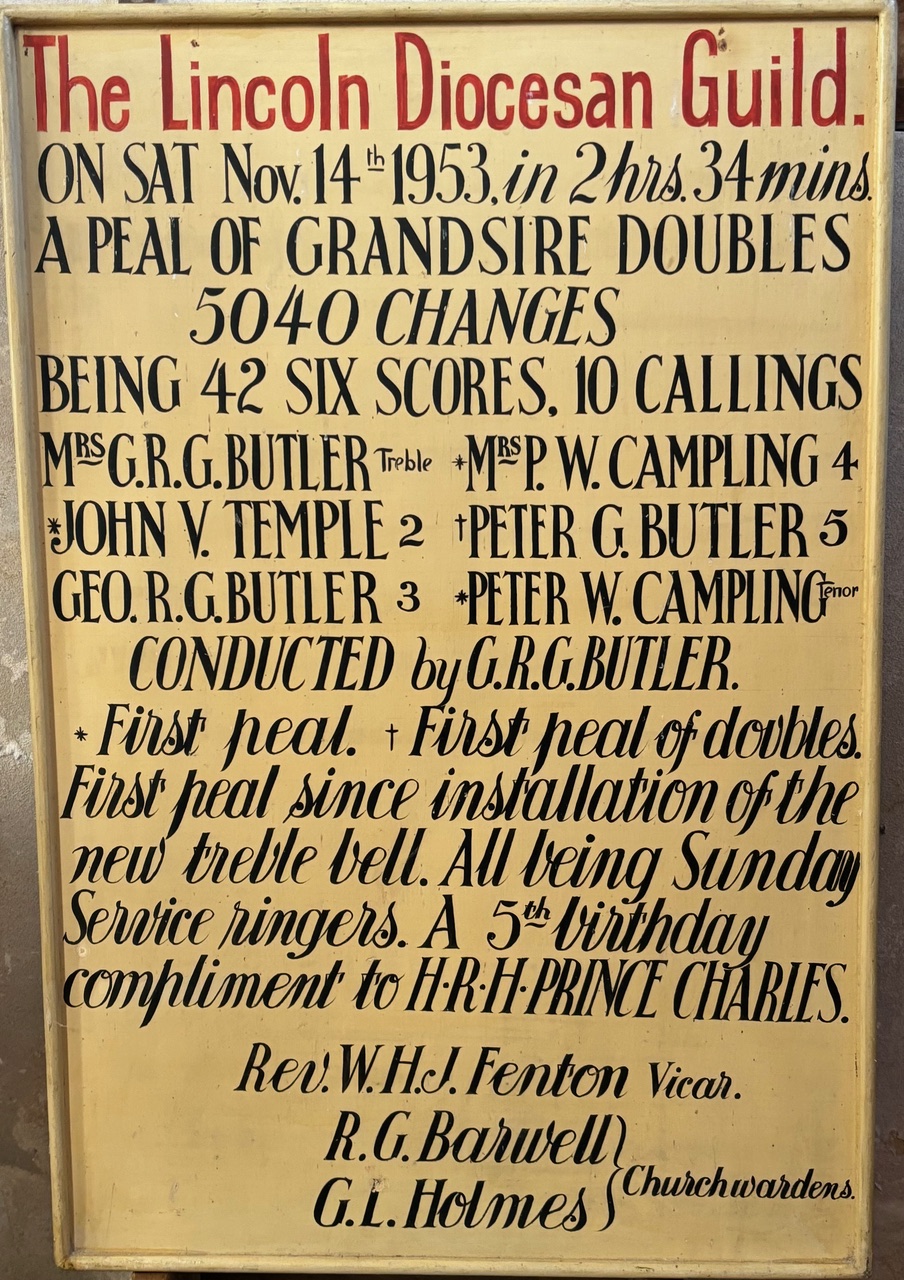 The Lincoln Diocesan Guild.
ON SAT Nov. 14th 1953, in 2 hrs. 34 mins.
A PEAL OF GRANDSIRE DOUBLES
5040 CHANGES
BEING 42 SIX SCORES, 10 CALLINGS
MRS G.R.G. BUTLER Treble *MRS P. W. CAMPLING 4
*JOHN V. TEMPLE 2 †PETER G. BUTLER 5
GEO. R.G. BUTLER 3 *PETER W. CAMPLING Tenor
CONDUCTED by G.R.G. BUTLER.
* First peal. † First peal of doubles.
First peal since installation of the
new treble bell. All being Sunday
Service ringers. A 5th birthday
compliment to H·R·H· PRINCE CHARLES.
Rev. W.H.J. Fenton Vicar.
R.G. Barwell
G.L. Holmes } Churchwardens.